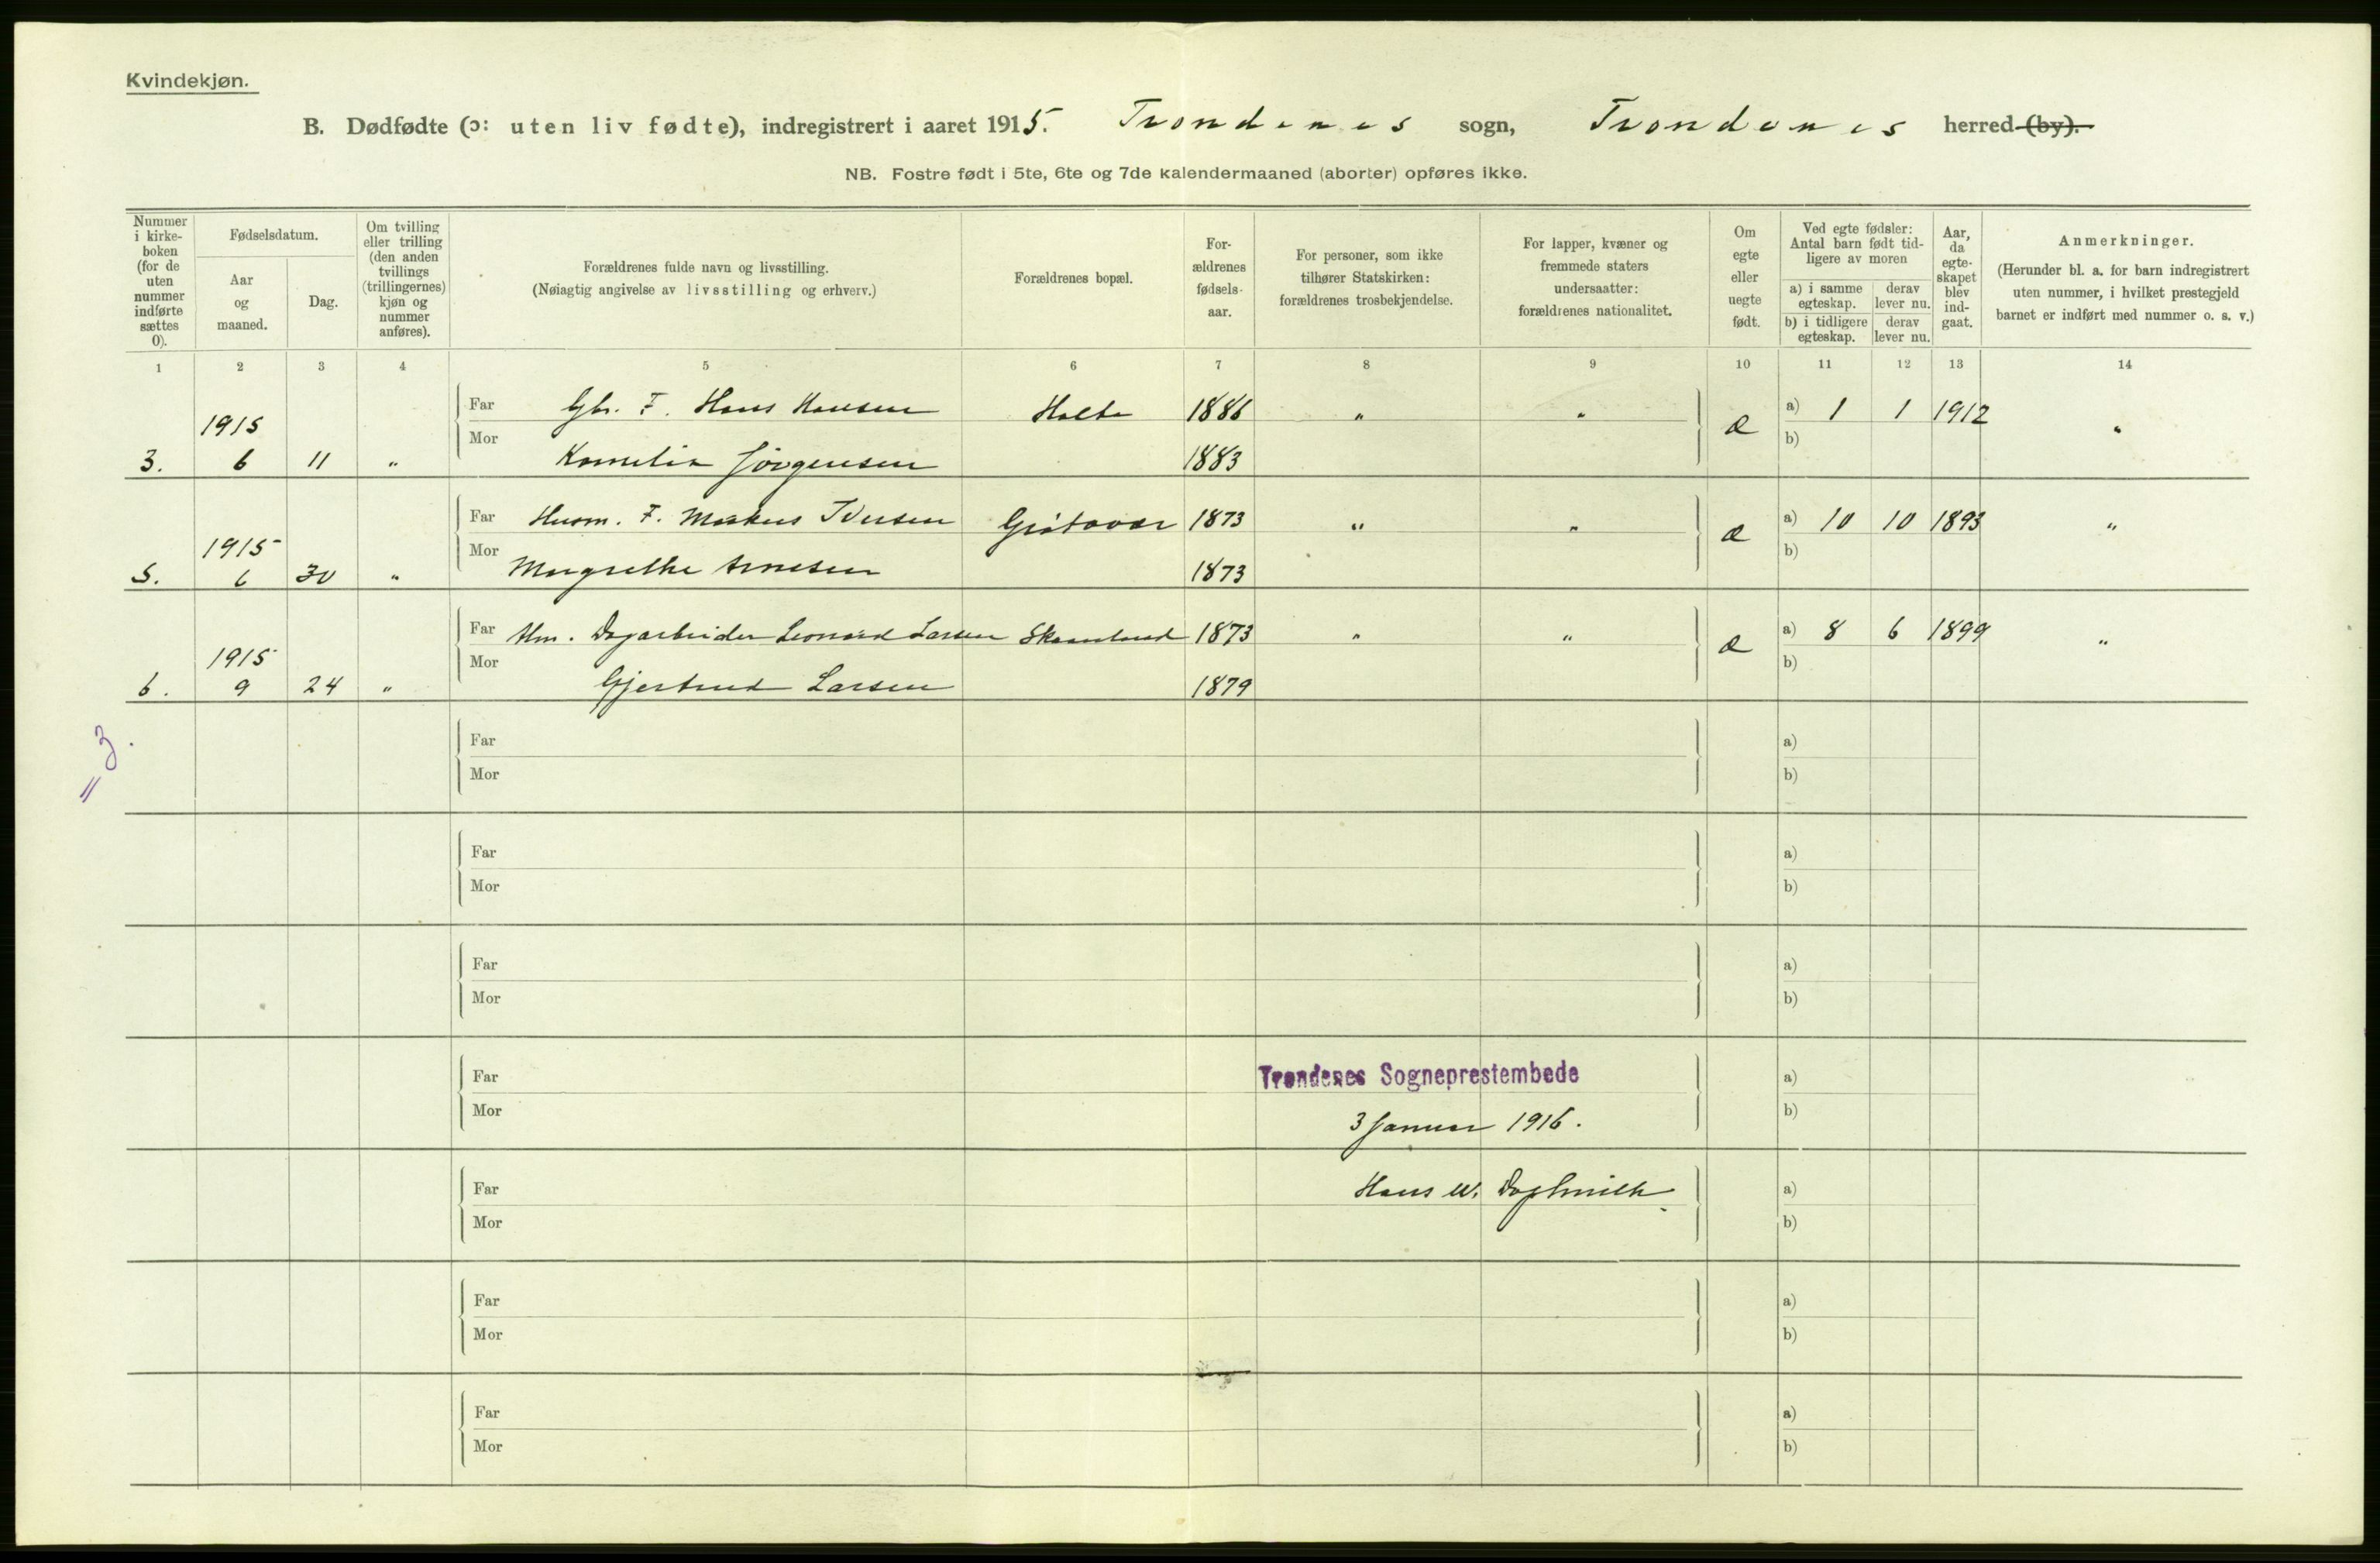 Kvindekjøn.
B. Dødfødte (ɔ: uten liv fødte), indregistrert i aaret 1915. Trondenes sogn, Trondenes herred (by).
NB. Fostre født i 5te, 6te og 7de kalendermaaned (aborter) opføres ikke.
Nummer i kirke-boken (for de uten nummer indførte sættes 0).
Fødselsdatum.
Aar og maaned.
Dag.
Om tvilling eller trilling (den anden tvillings (trillingernes) kjøn og nummer anføres).
Forældrenes fulde navn og livsstilling.
(Nøiagtig angivelse av livsstilling og erhverv.)
Forældrenes bopæl.
For-ældrenes fødsels-aar.
For personer, som ikke tilhører Statskirken: forældrenes trosbekjendelse.
For lapper, kvæner og fremmede staters undersaatter: forældrenes nationalitet.
Om egte eller uegte født.
Ved egte fødsler: Antal barn født tid-ligere av moren
a) i samme egteskap. derav lever nu.
b) i tidligere egteskap. derav lever nu.
Aar, da egte-skapet blev ind-gaat.
Anmerkninger.
(Herunder bl. a. for barn indregistrert uten nummer, i hvilket prestegjeld barnet er indført med nummer o. s. v.)
1 2 3 4 5 6 7 8 9 10 11 12 13 14
Far Gbr. F. Hans Hansen Holte 1886 " " æ a) 1 1 1912 "
3. 1915 6 11 " Mor Kornelia Jörgensen 1883 b)
Far Husm. F. Markus Iversen Grötavær 1873 " " æ a) 10 10 1893 "
5. 1915 6 30 " Mor Margrethe Arnesen 1873 b)
Far Hm. Dagarbeider Leonard Larsen Skaanland 1873 " " æ a) 8 6 1899 "
6. 1915 9 24 " Mor Gjertrud Larsen 1879 b)
= 3.
Far a)
Mor b)
Far a)
Mor b)
Far a)
Mor b)
Far Trondenes Sogneprestembede a)
Mor 3 Januar 1916. b)
Far Hans W. a)
Mor b)
Far a)
Mor b)
Far a)
Mor b)